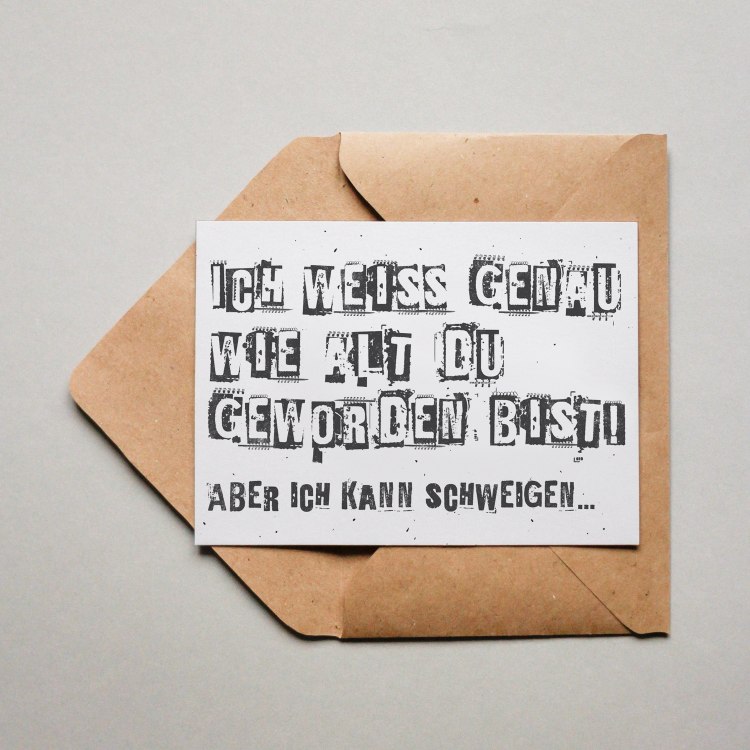 ICH WEISS GENAU
WIE ALT DU
GEWORDEN BIST!
ABER ICH KANN SCHWEIGEN...